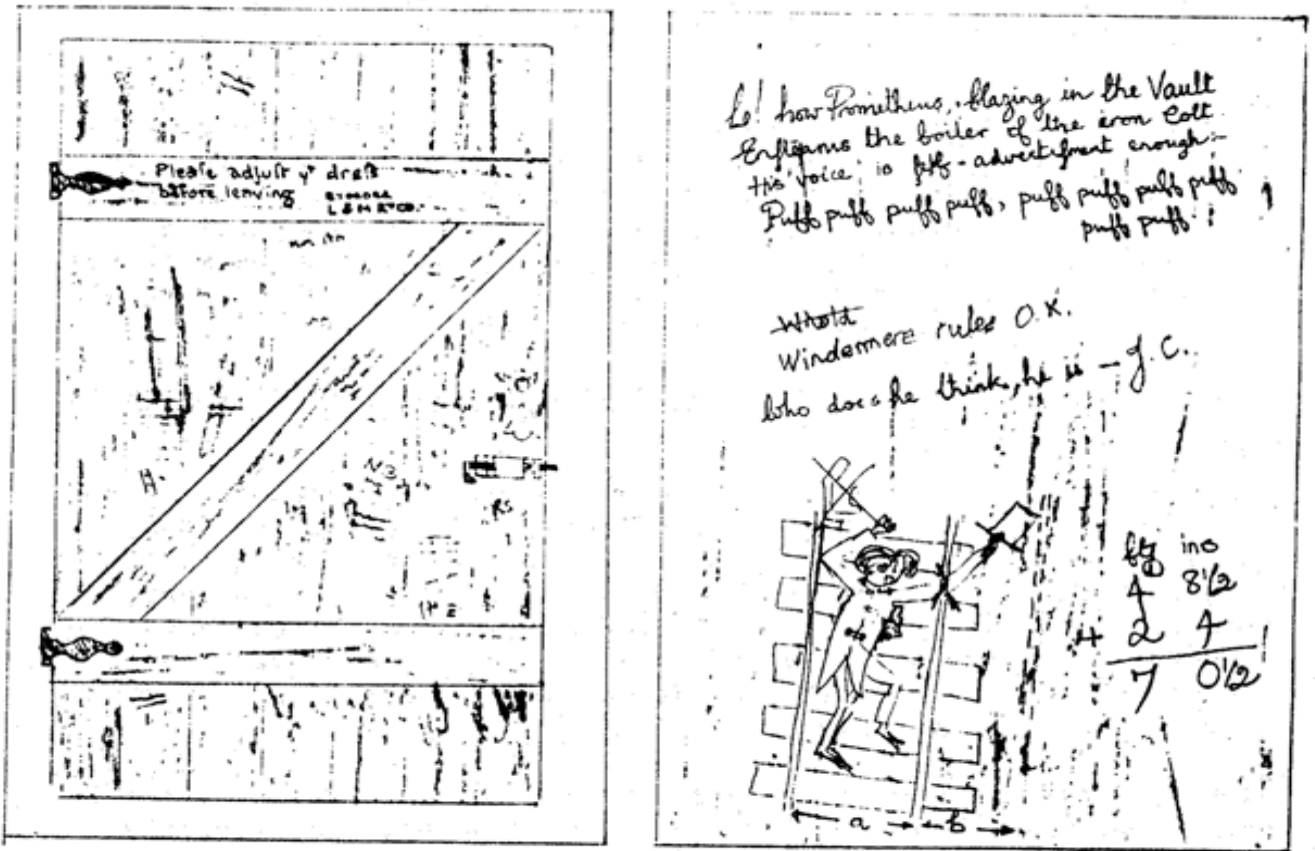 Please adjust yr dress
before leaving
BY ORDER
L & M R CO.
H
N3
RS
Lo! how Prometheus, blazing in the Vault
the boiler of the iron Colt
His voice is puff-advertisment enough:-
Puff puff puff puff, puff puff puff puff
puff puff !
1
Windermere rules O.K.
Who does he think he is — J.C.
fts ins
4 8½
+ 2 4
7 0½
a b